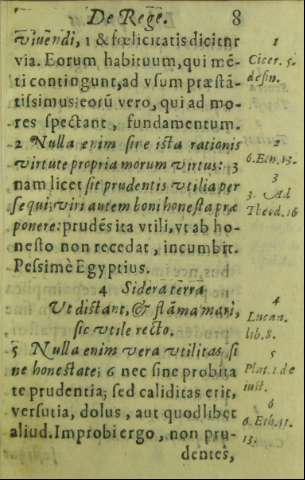 De Rege. 8
viuendi, 1 & fœlicitatis dicitur
via. Eorum habituum, qui mē-
ti contingunt, ad vsum præstā-
tissimus: eorū vero, qui ad mo-
res spectant, fundamentum.
2 Nulla enim sine ista rationis
virtute propria morum virtus: 3
nam licet sit prudentis vtilia per
sequi; viri autem boni honesta præ
ponere: prudētis ita vtili, vt ab ho-
nesto non recedat, incumbit.
Pessimè Egyptius.
4 Sidera terrâ
Vt distant, & flāma mari,
sic vtile recto.
5 Nulla enim vera vtilitas si
ne honestate; 6 nec sine probita
te prudentia; sed caliditas erit,
versutia, dolus, aut quodlibet
aliud. Improbi ergo, non pru-
dentes,
1
Cicer. 5.
defin.
2
6. Eth. 13.
3
3. Ad
Theod. 16
4
Lucan.
lib. 8.
5
Plat. 1. de
iust.
6
6. Eth. 11.
13.